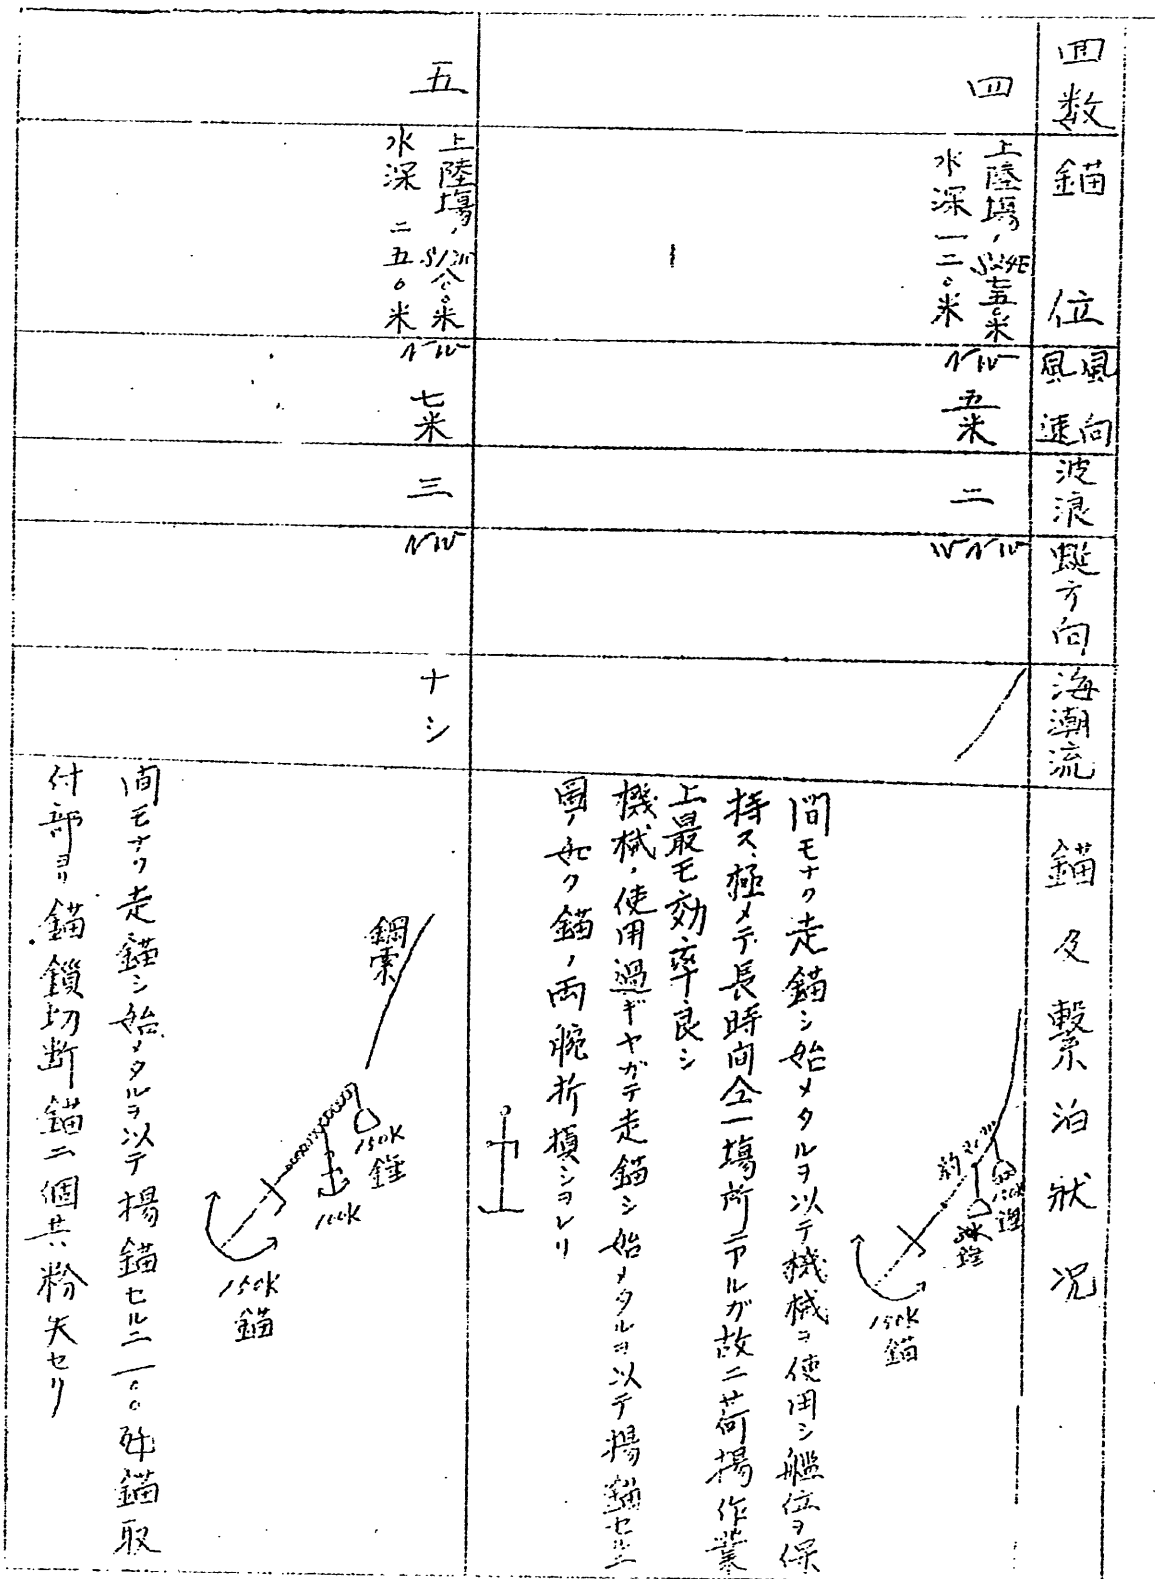 回数
錨位
風向
風速
波浪
艇方向
海潮流
錨及繋泊状況
四
上陸場ノ
七五〇米
水深一二〇米
NW
五米
二
WNW
150K
錨
間モナク走錨シ始メタルヲ以テ機械ヲ使用シ艦位ヲ保
持ス、極メテ長時間仝一場所ニアルガ故ニ荷揚作業
上最モ効率良シ
機械ノ使用過ギヤガテ走錨シ始メタルヲ以テ揚錨セルニ
圖ノ如ク錨ノ両腕折損シヨレリ
五
上陸場ノ
水深 二五〇米
NW
七米
三
NW
ナシ
鋼索
150K
錘
100K
150K
錨
間モナク走錨シ始メタルヲ以テ揚錨セルニ一〇〇瓩錨取
付部ヨリ錨鎖切断錨二個共粉失セリ